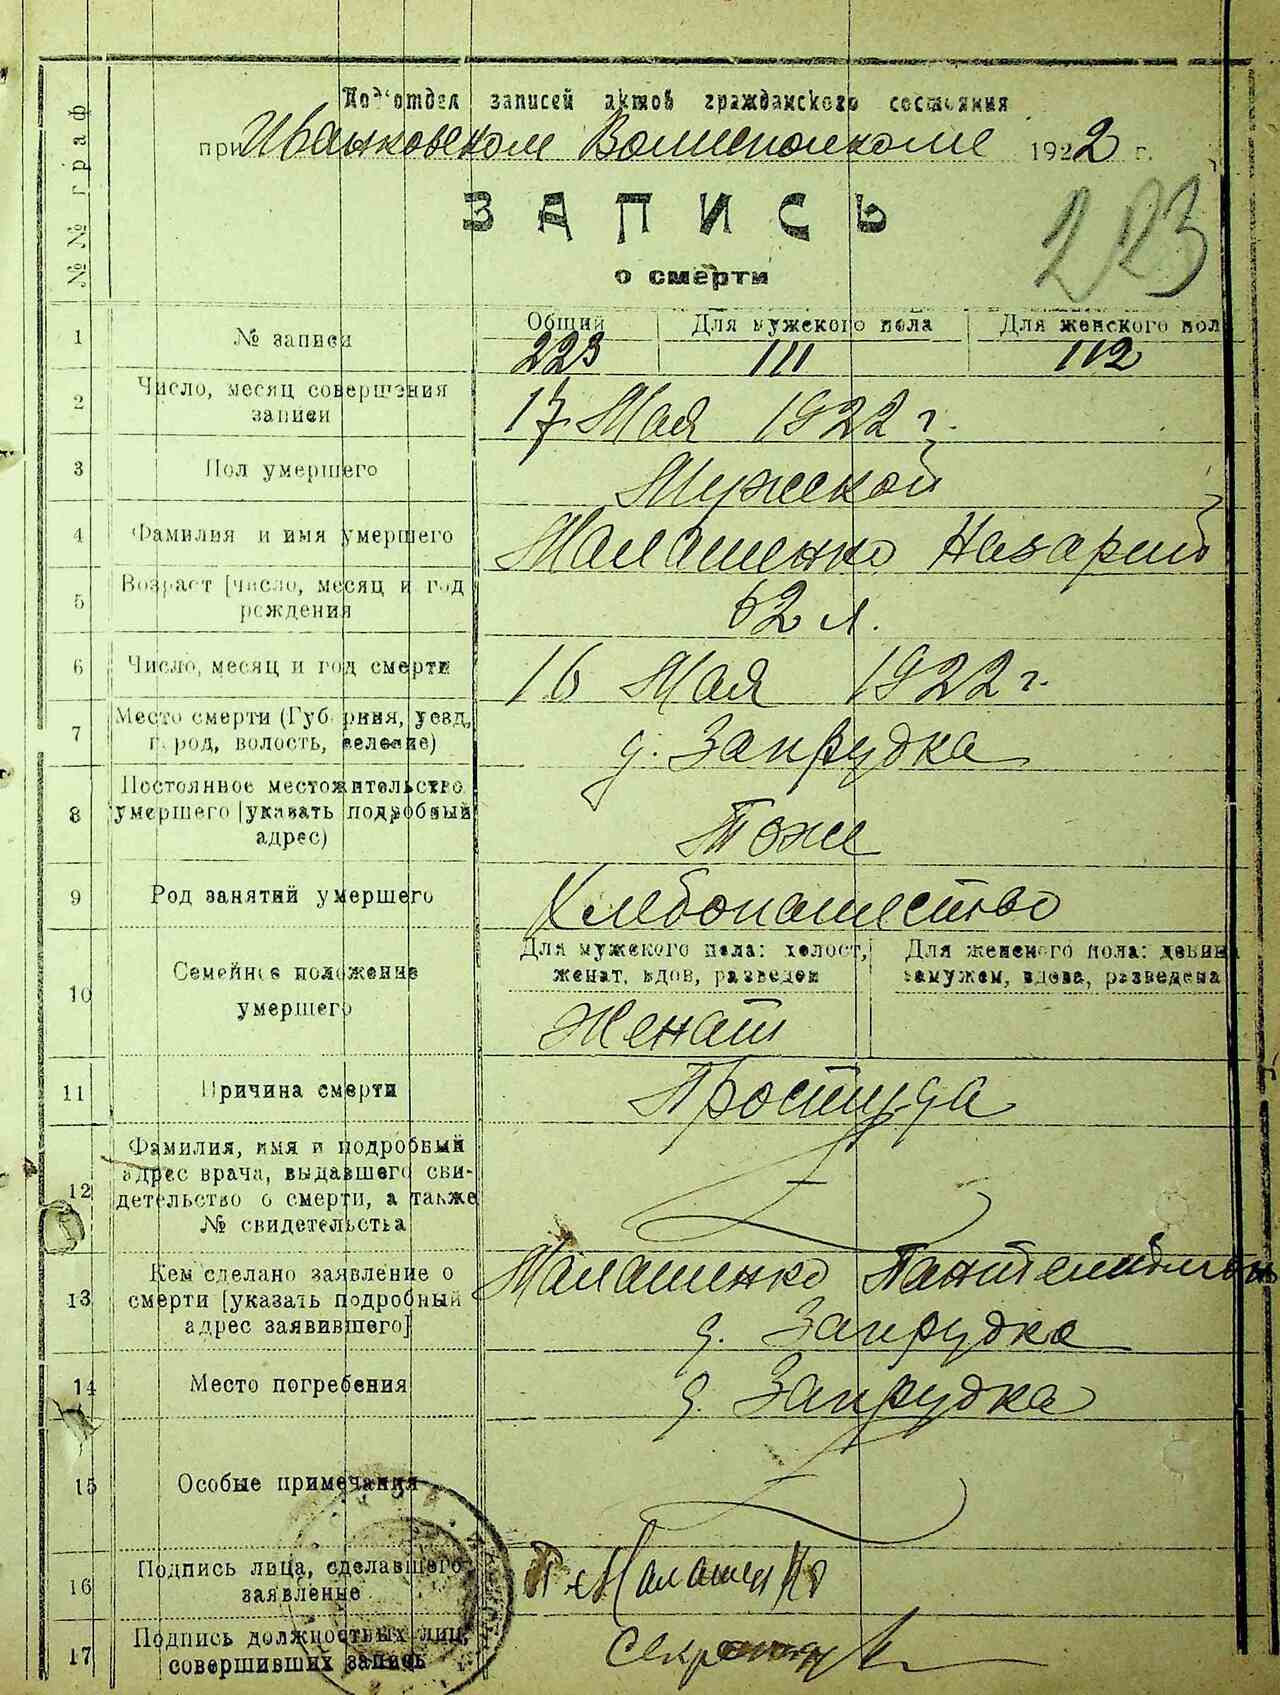 №№ граф
Подотдел записей актов гражданского состояния
при Иваньковском Волисполкоме 1922 г.
ЗАПИСЬ
о смерти
223
1 № записи Общий Для мужского пола Для женского пол
223 111 112
2 Число, месяц совершения
записи
17 Мая 1922 г.
3 Пол умершего Мужской
4 Фамилия и имя умершего Малашенко Назарий
5 Возраст [число, месяц и год
рождения
62 л.
6 Число, месяц и год смерти 16 Мая 1922 г.
7 Место смерти (Губерния, уезд,
город, волость, селение)
д. Запрудка
8 Постоянное местожительство
умершего [указать подробный
адрес)
Тоже
9 Род занятий умершего Хлебопашество
10 Семейное положение
умершего
Для мужского пола: холост,
женат, вдов, разведен
Для женского пола: девица
замужем, вдова, разведена
Женат
11 Причина смерти Простуда
12 Фамилия, имя и подробный
адрес врача, выдавшего сви-
детельство о смерти, а также
№ свидетельства
13 Кем сделано заявление о
смерти [указать подробный
адрес заявившего]
Малашенко Пантелеймон
д. Запрудка
14 Место погребения д. Запрудка
15 Особые примечания
16 Подпись лица, сделавшего
заявление
П Малашенко
17 Подпись должностных лиц,
совершивших запись